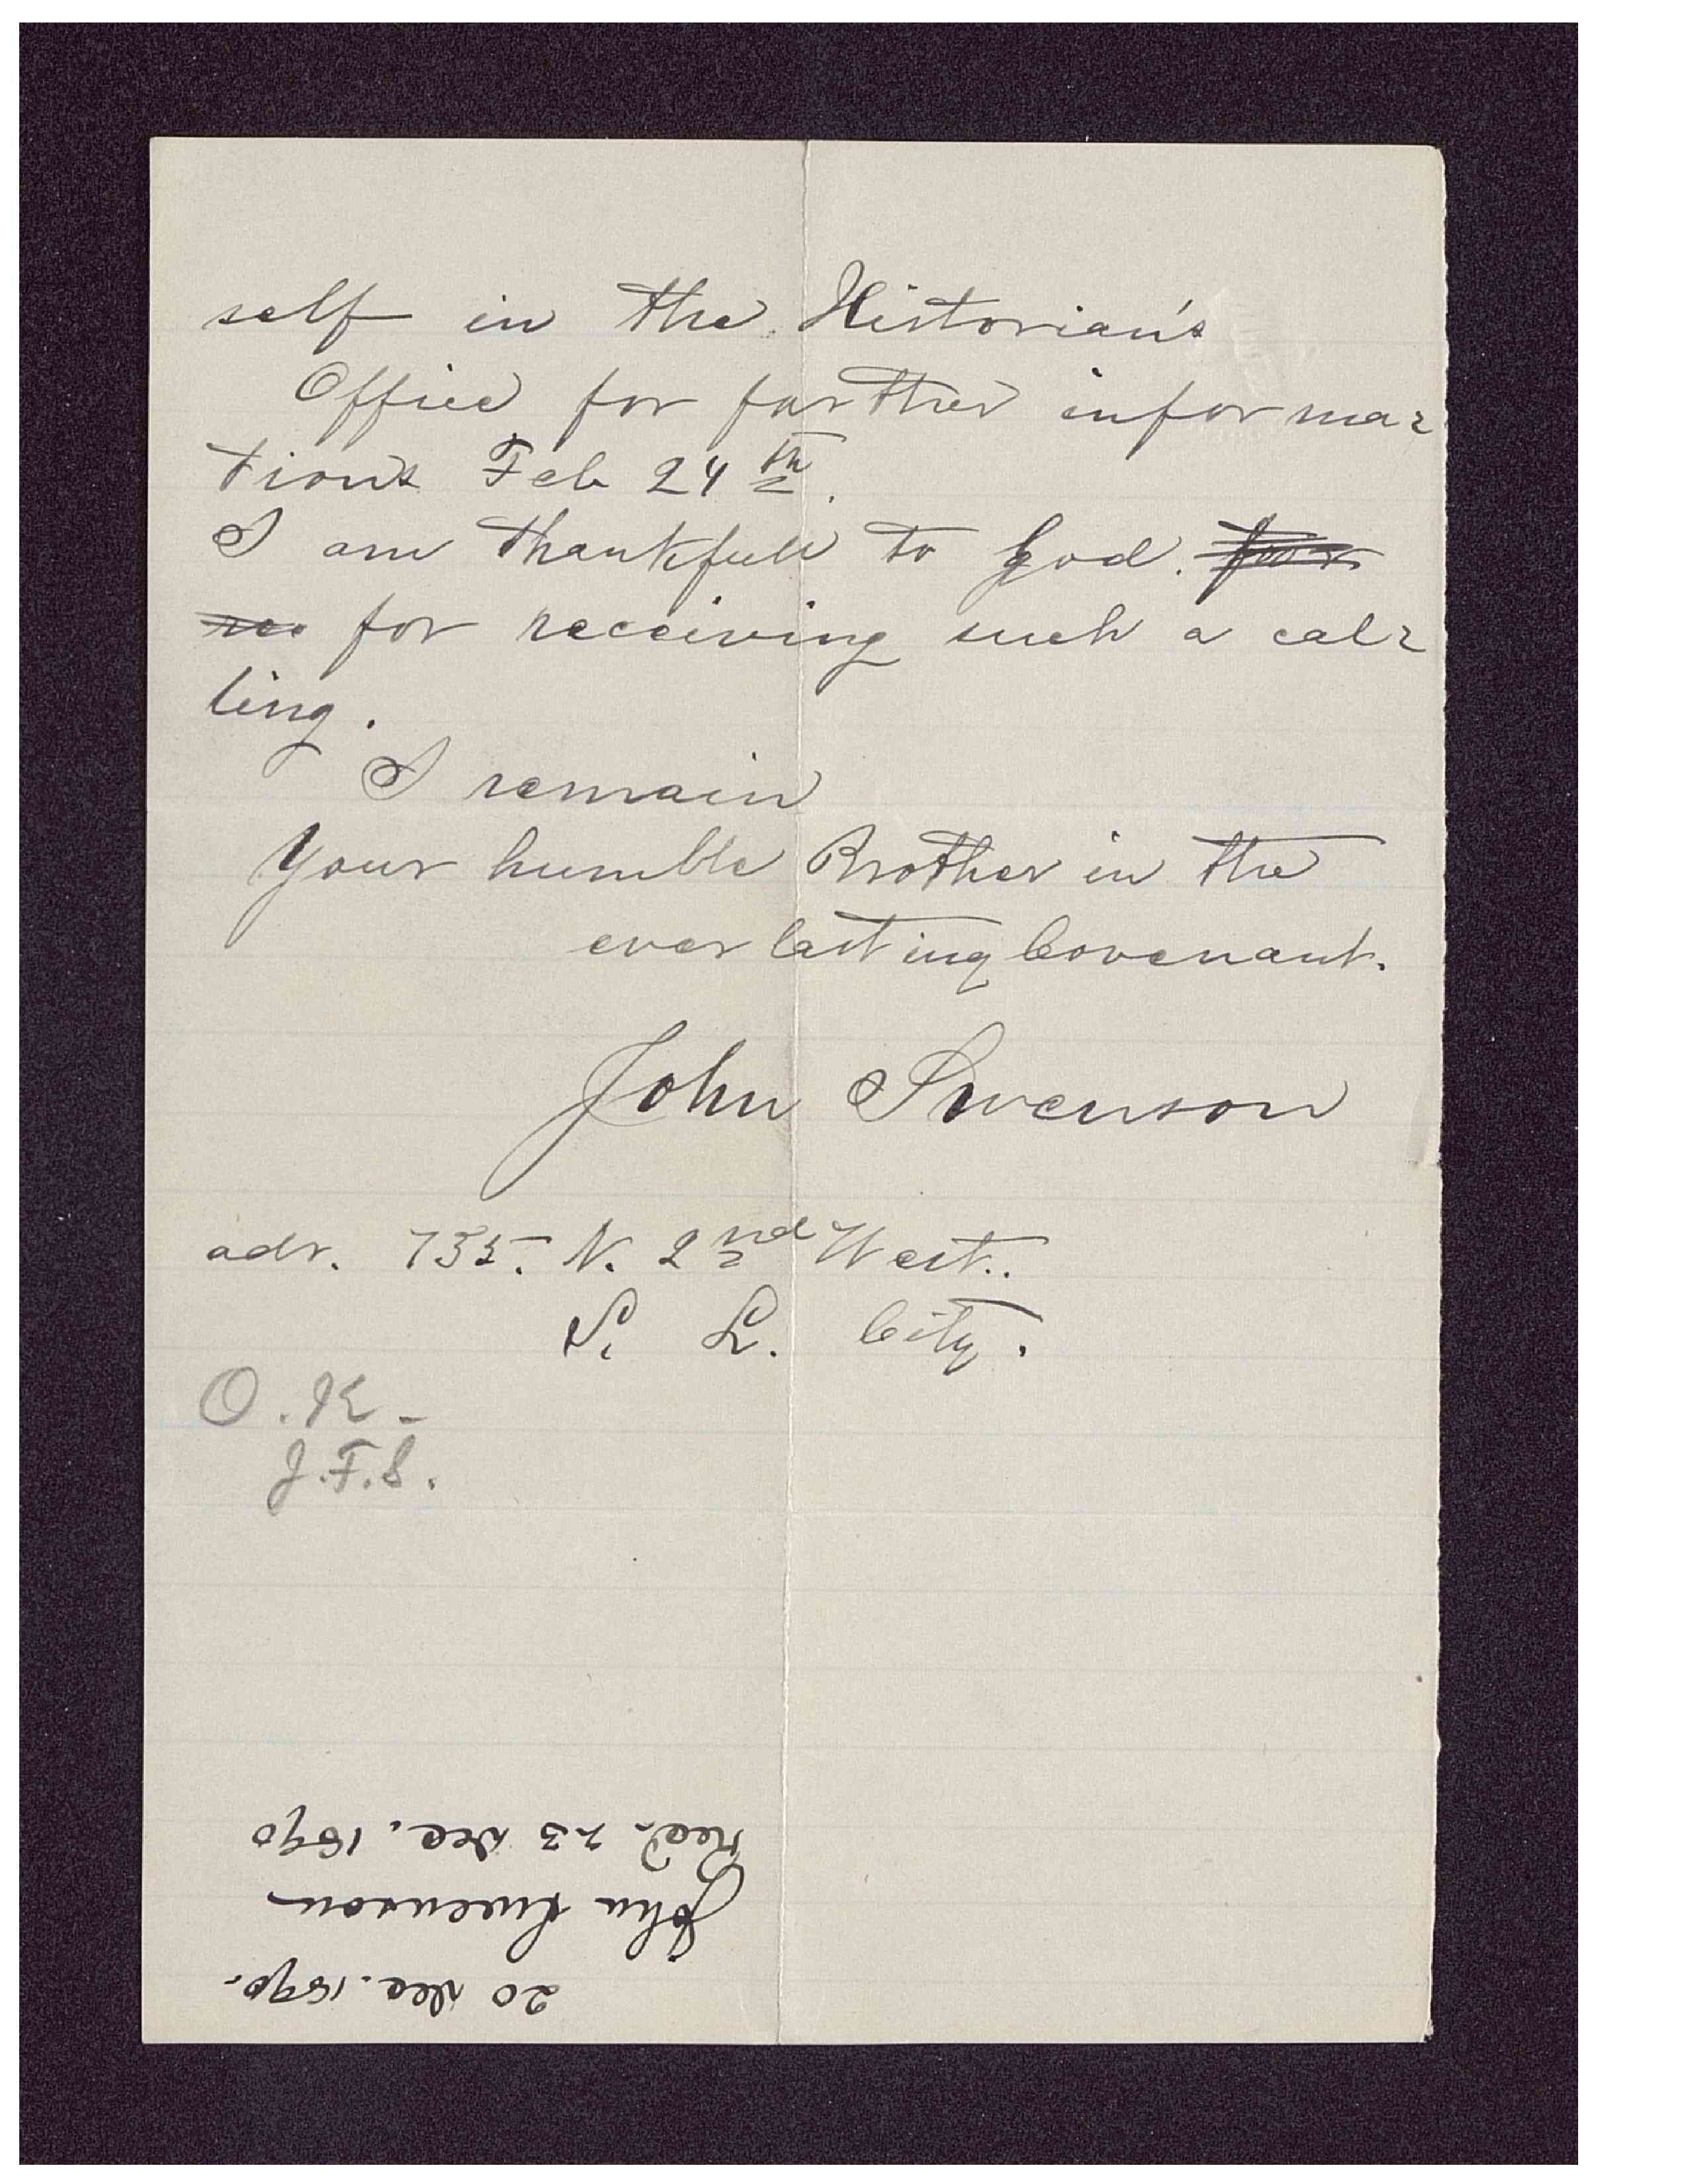 self in the Historian's
Office for farther informa-
tions Feb 24th.
I am thankfull to God. for
rec for receiving such a cal-
ling.
I remain
Your humble Brother in the
everlasting Covenant.
John Swenson
adr. 735. N. 2nd West.
S. L. City.
O.K.-
J.F.S.
20 Dec. 1890.
John Swenson
Recd. 23 Dec. 1890